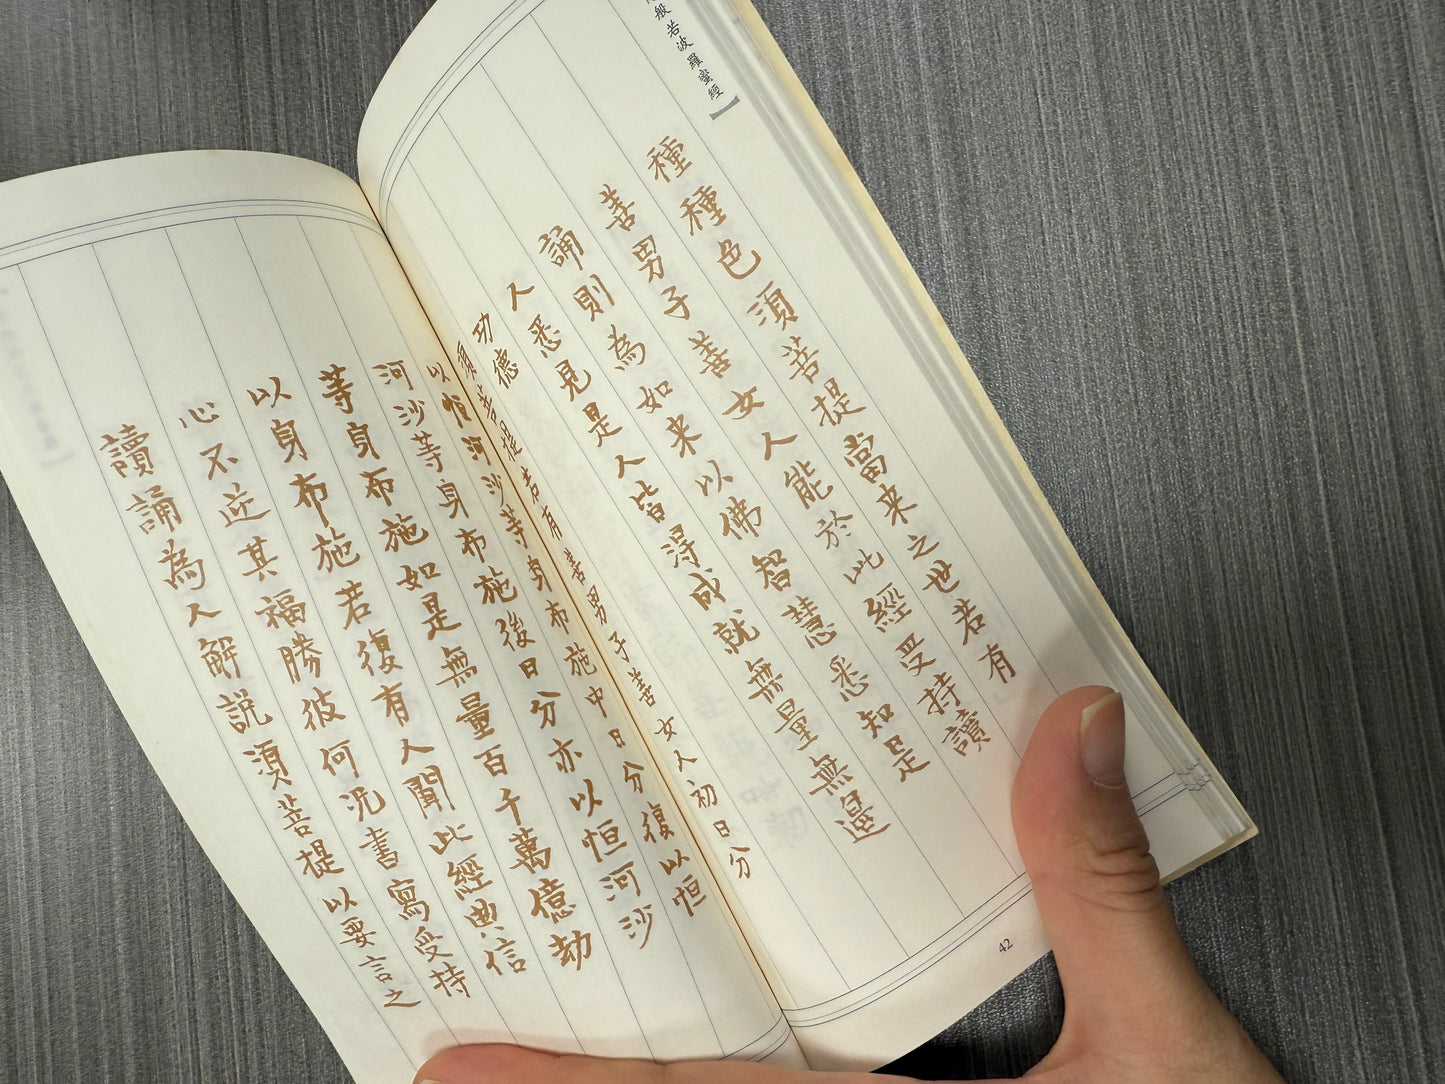 般若波羅蜜經】
種種色須菩提當来之世若有
善男子善女人能於此經受持讀
誦則為如来以佛智慧悉知是
人悉見是人皆得成就無量無邊
功德
須菩提若有善男子善女人初日分
42
以恒河沙等身布施中日分復以恒
河沙等身布施後日分亦以恒河沙
等身布施如是無量百千萬億劫
以身布施若復有人聞此經典信
心不逆其福勝彼何況書寫受持
讀誦為人解説須菩提以要言之